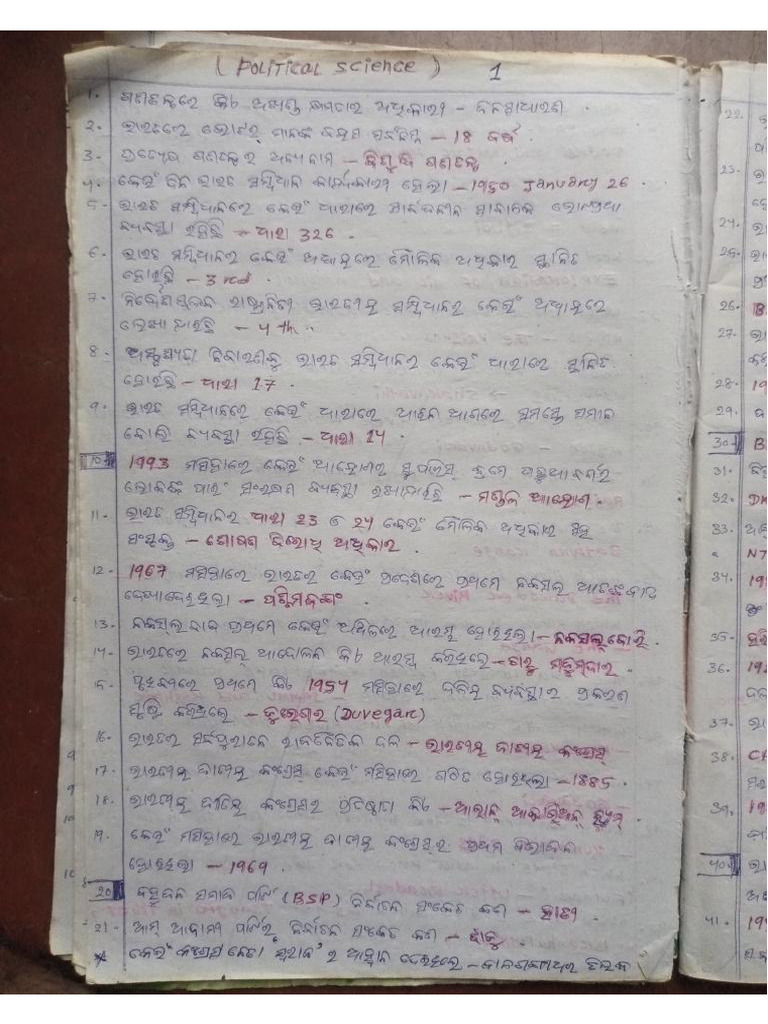 (Political Science) 1
1. ଗଣତନ୍ତ୍ରରେ କିଏ ଅଖଣ୍ଡ କ୍ଷମତାର ଅଧିକାରୀ - ଜନସାଧାରଣ
2. ଭାରତରେ ଭୋଟର୍ ମାନଙ୍କ ବୟସ ସର୍ବନିମ୍ନ - 18 ବର୍ଷ
3. ଗଣତନ୍ତ୍ରର ଅନ୍ୟନାମ - ଗଣତନ୍ତ୍ର .
4. କେଉଁ ଦିନ ଭାରତ ସମ୍ବିଧାନ କାର୍ଯ୍ୟକାରୀ ହେଲା - 1950 January 26 .
5. ଭାରତ ସମ୍ବିଧାନରେ କେଉଁ ଧାରାରେ ସାର୍ବଜନୀନ ସାବାଳକ
ବ୍ୟବସ୍ଥା ରହିଛି - ଧାରା 326 .
6. ଭାରତ ସମ୍ବିଧାନର କେଉଁ ଅଧ୍ୟାୟରେ ମୌଳିକ ଅଧିକାର ସ୍ଥାନିତ
ହୋଇଛି - 3rd .
7. ରାଷ୍ଟ୍ରନୀତି ଭାରତୀୟ ସମ୍ବିଧାନର କେଉଁ ଅଧ୍ୟାୟରେ
ଲେଖାଯାଇଛି - 4th .
8. ଅସ୍ପୃଶ୍ୟତା ନିବାରଣକୁ ଭାରତ ସମ୍ବିଧାନର କେଉଁ ଧାରାରେ ସ୍ଥାନିତ
ହୋଇଛି - ଧାରା 17 .
9. ଭାରତ ସମ୍ବିଧାନରେ କେଉଁ ଧାରାରେ ଆଇନ ଆଗରେ ସମସ୍ତେ ସମାନ
ବୋଲି ବ୍ୟବସ୍ଥା ରହିଛି - ଧାରା 14 .
10. 1993 ମସିହାରେ କେଉଁ ଆୟୋଗର ସୁପାରିସ୍ କ୍ରମେ ପଛୁଆ ବର୍ଗର
ଲୋକଙ୍କ ପାଇଁ ସଂରକ୍ଷଣ ବ୍ୟବସ୍ଥା - ମଣ୍ଡଳ ଆୟୋଗ .
11. ଭାରତ ସମ୍ବିଧାନର ଧାରା 23 ଓ 24 କେଉଁ ମୌଳିକ ଅଧିକାର ସହ
ସଂପୃକ୍ତ - ଶୋଷଣ ବିରୋଧି ଅଧିକାର .
12. 1967 ମସିହାରେ ଭାରତର କେଉଁ ପ୍ରଦେଶରେ ପ୍ରଥମେ ନକ୍ସଲ ଆତଙ୍କବାଦ
ଦେଖାଦେଇଥିଲା - ପଶ୍ଚିମବଙ୍ଗ .
13. ନକ୍ସଲବାଦ ପ୍ରଥମେ କେଉଁ ଅଞ୍ଚଳରେ ଆରମ୍ଭ ହୋଇଥିଲା - ନକସଲ୍ବାଡି .
14. ଭାରତରେ ନକ୍ସଲ ଆନ୍ଦୋଳନ କିଏ ଆରମ୍ଭ କରିଥିଲେ - ଚାରୁ ମଜୁମଦାର .
15. ପ୍ରଥମେ କିଏ 1954 ମସିହାରେ ଦଳିୟ ବ୍ୟବସ୍ଥାର ପ୍ରକରଣ
ସୃଷ୍ଟି କରିଥିଲେ - ଡୁଭେଗର (Duvegarc)
16. ଭାରତର ସର୍ବପୁରାତନ ରାଜନୈତିକ ଦଳ - ଭାରତୀୟ ଜାତୀୟ କଂଗ୍ରେସ୍
17. ଭାରତୀୟ ଜାତୀୟ କଂଗ୍ରେସ୍ କେଉଁ ମସିହାରେ ଗଠିତ ହୋଇଥିଲା - 1885 .
18. ଭାରତୀୟ ଜାତୀୟ କଂଗ୍ରେସର ପ୍ରତିଷ୍ଠାତା କିଏ - ଆଲାନ୍ ଅକ୍ଟାଭିଅନ୍ ହ୍ୟୁମ୍
19. କେଉଁ ମସିହାରେ ଭାରତୀୟ ଜାତୀୟ କଂଗ୍ରେସର ପ୍ରଥମ ବିଭାଜନ
ହୋଇଥିଲା - 1969 .
20. ବହୁଜନ ସମାଜ ପାର୍ଟି (BSP) ନିର୍ବାଚନ ସଂକେତ କଣ - ହାତୀ .
21. ଆମ୍ ଆଦମୀ ପାର୍ଟିର ନିର୍ବାଚନ ସଂକେତ କଣ - ଝାଡୁ
* କେଉଁ କଂଗ୍ରେସ ନେତା 'ସ୍ୱରାଜ' ର ଆହ୍ୱାନ ଦେଇଥିଲେ - ବାଳଗଙ୍ଗାଧର ତିଲକ
22.
23.
24.
25.
26. B
27.
28. 19
29.
30. B
31.
32.
33.
34. 19
35.
36. 19
37.
38.
39. 19
40.
41. 19